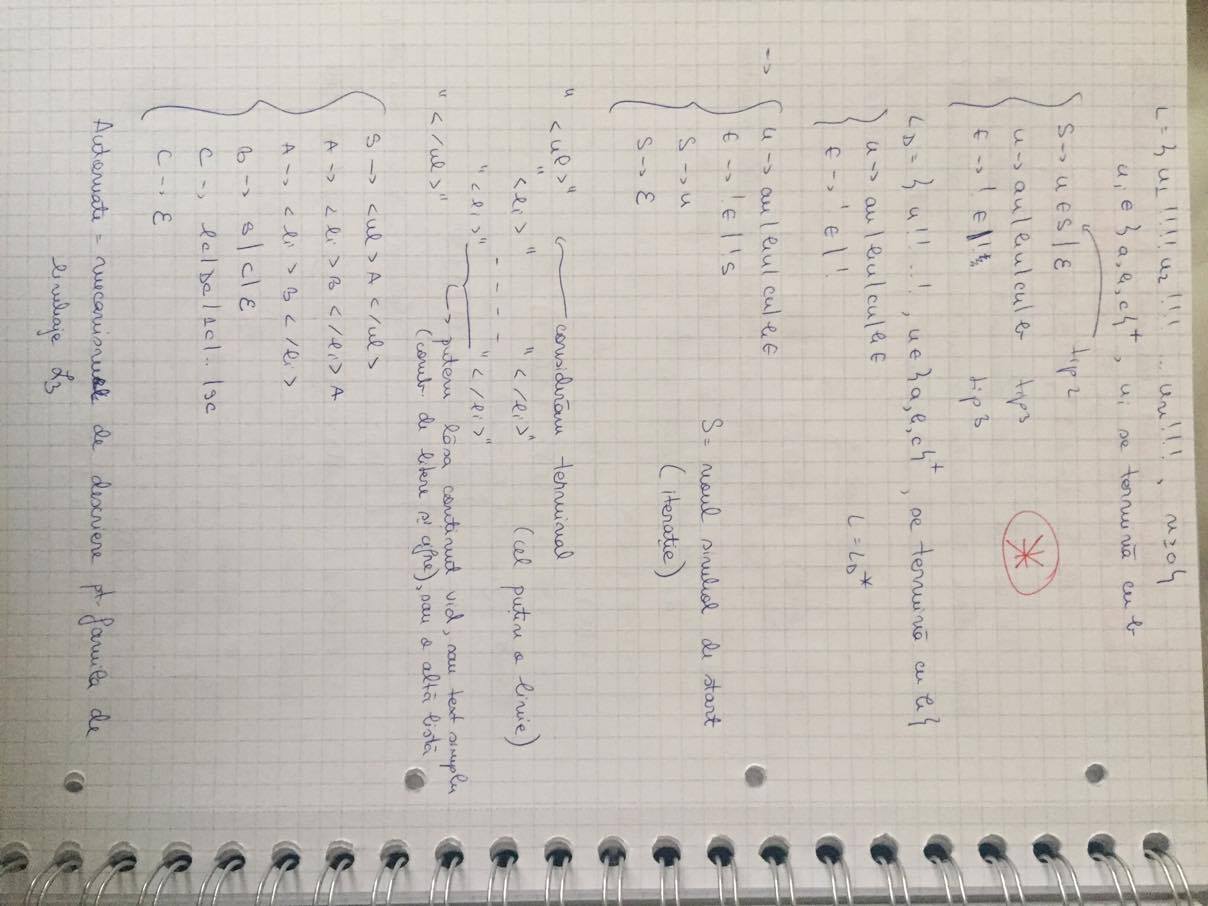 L = { u₁ !!!! u₂ !!! ... uₙ !!! , n ≥ 0 }
uᵢ ∈ { a, b, c }⁺ , uᵢ se termină cu b
S → u E S | ε tip 2
u → au | bu | cu | b tip 3
E → ! E | ! tip 3
L_D = { u !! ... ! , u ∈ { a, b, c }⁺ , se termină cu b }
u → au | bu | cu | b E
E → ! E | ! L = L_D*
→ u → au | bu | cu | b E
E → ! E | ! S
S → u S = noul simbol de start
S → ε (iterație)
" <ul>" considerăm terminal
"<li>" - - - - "</li>" (cel puțin o linie)
"<li>" "</li>"
→ putem lăsa conținut vid, sau text simplu
"</ul>" (comb. de litere și cifre), sau o altă listă
S → <ul> A </ul>
A → <li> B </li> A
A → <li> B </li>
B → S | C | ε
C → C | C | .. | C
C → ε
Automate = mecanisme de descriere pt. familia de
limbaje L₃